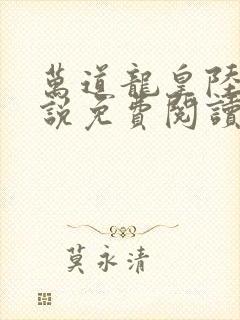 萬道龍皇陸
說免費閱讀
莫永清